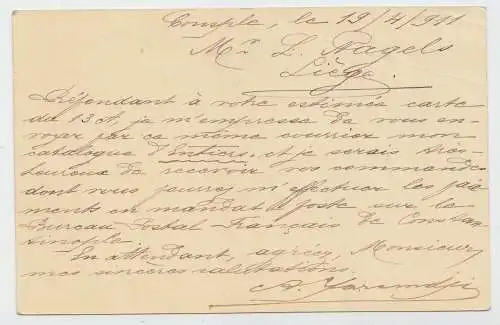 Consple, le 19/4/911
Mr L. Nagels
Liège.
Réfendant à votre estimée carte
du 13 ct, je m'empresse de vous en-
voyer par ce même courrier mon
catalogue d'Entiers, et je serais très-
heureux de recevoir vos commandes
dont vous pourrez m'effectuer les paie-
ments en mandat poste sur le
Bureau Postal Français de Constan-
tinople.
En attendant, agréez, Monsieur,
mes sincères salutations.